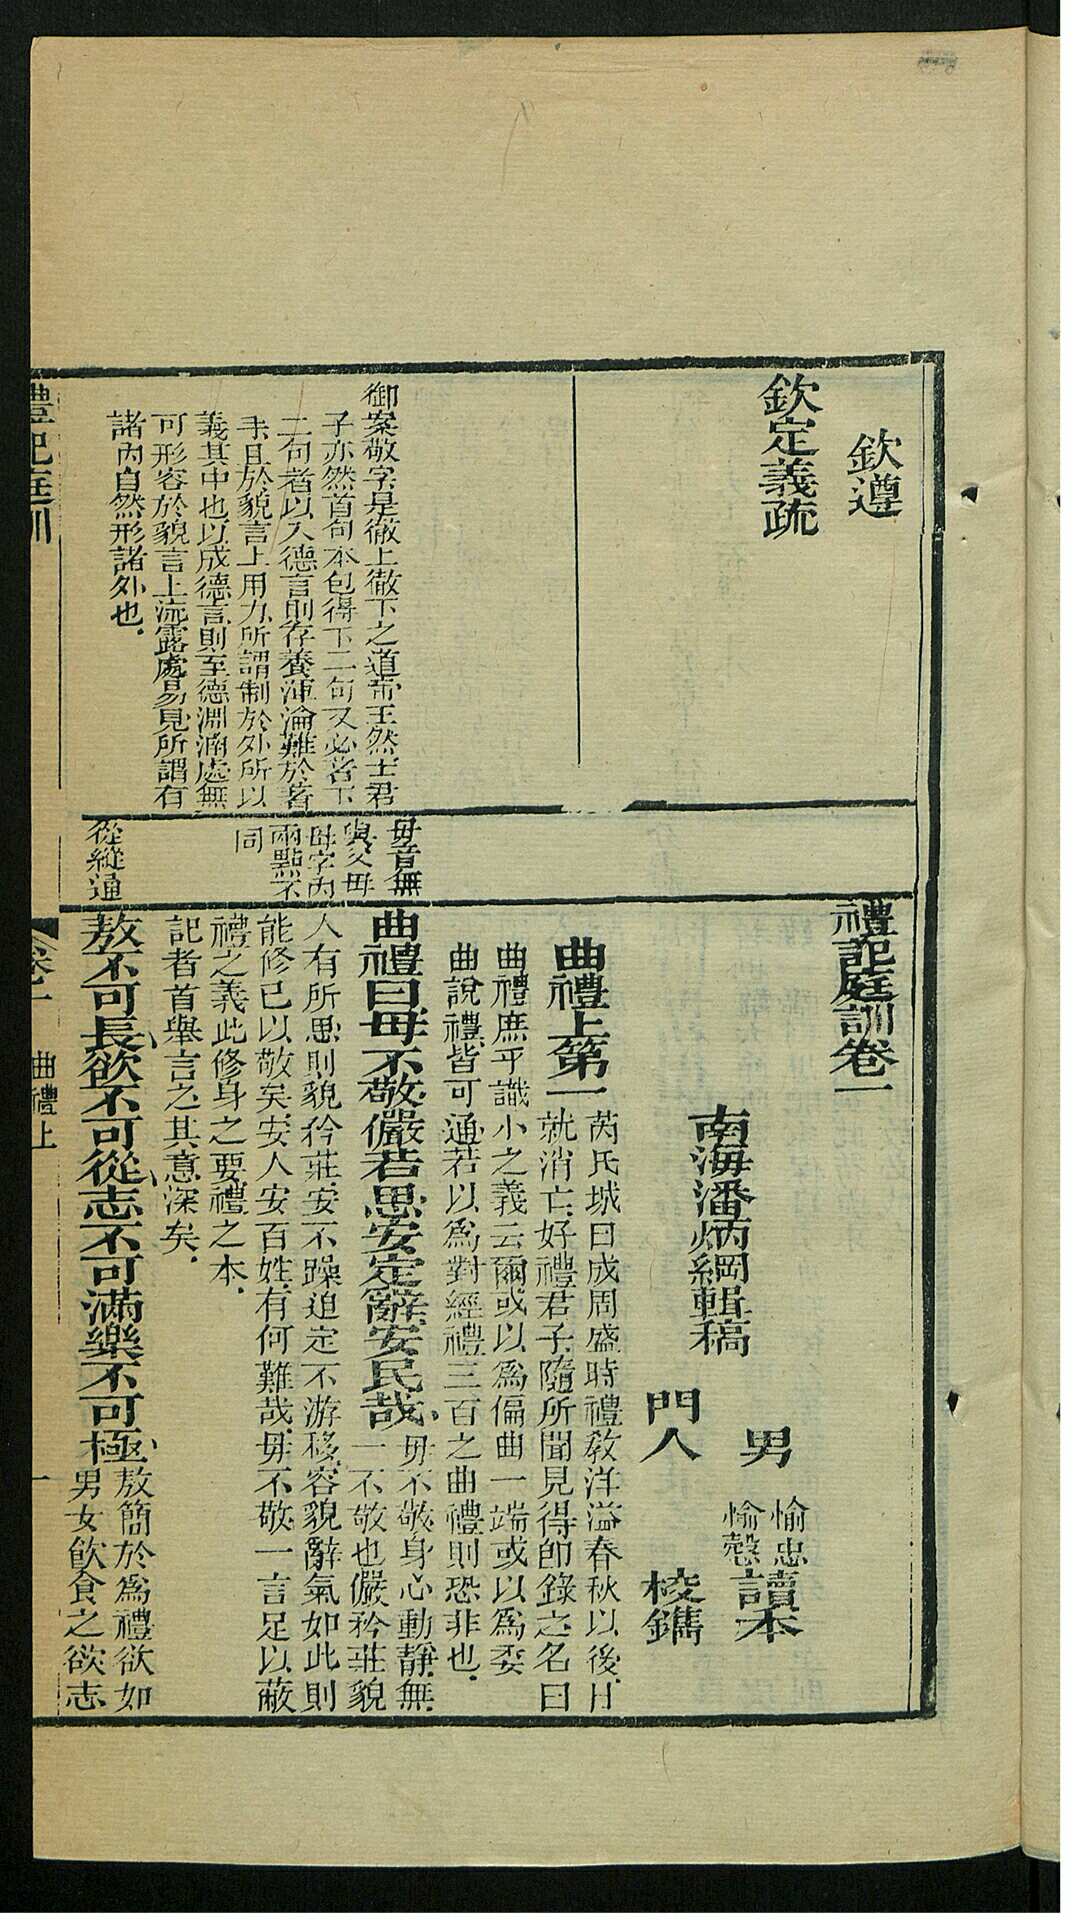 欽遵
欽定義疏
御案敬字是徹上徹下之道帝王然士君
子亦然首句本包得下二句又必著下
二句者以入德言則存養渾淪難於著
手且於貌言上用力所謂制於外所以
義其中也以成德言則至德淵涵處無
可形容於貌言上流露處易見所謂有
諸內自然形諸外也
毋音無
與父母
母字內
兩點不
同
從縱通
禮記庭訓卷一
南海潘炳綱輯稿
男 愉忠
愉愨 讀本
門人 校鐫
曲禮上第一
芮氏城曰成周盛時禮教洋溢春秋以後日
就消亡好禮君子隨所聞見得即錄之名曰
曲禮庶乎識小之義云爾或以為偏曲一端或以為委
曲說禮皆可通若以為對經禮三百之曲禮則恐非也
曲禮曰毋不敬儼若思安定辭安民哉
毋不敬身心動靜無
一不敬也儼矜莊貌
人有所思則貌矜莊安不躁迫定不游移容貌辭氣如此則
能修己以敬矣安人安百姓有何難哉毋不敬一言足以蔽
禮之義此修身之要禮之本
記者首舉言之其意深矣
敖不可長欲不可從志不可滿樂不可極
敖簡於為禮欲如
男女飲食之欲志
禮記庭訓
卷一 曲禮上
一